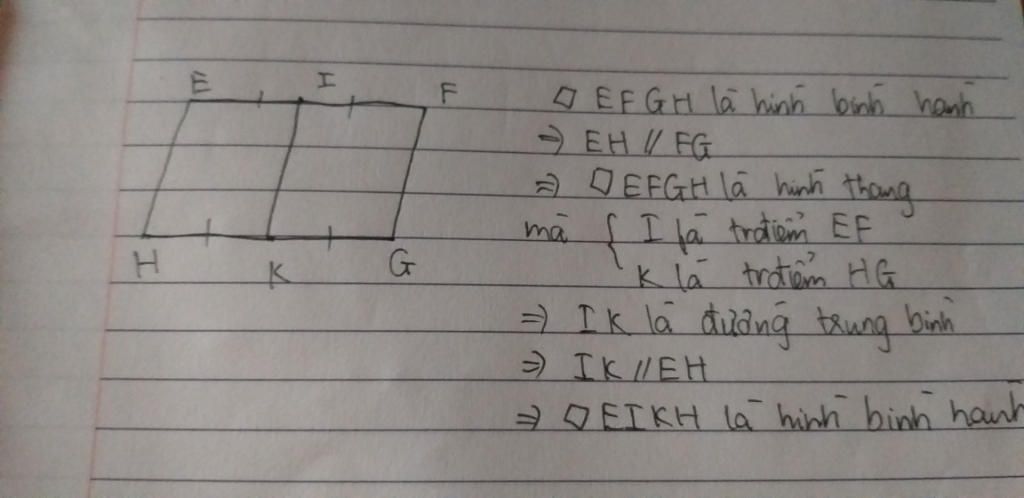 E I F
H K G
▱ EFGH là hình bình hành
⇒ EH // FG
⇒ ▱ EFGH là hình thang
mà { I là trđiểm EF
K là trđiểm HG
⇒ IK là đường trung bình
⇒ IK // EH
⇒ ▱ EIKH là hình bình hành